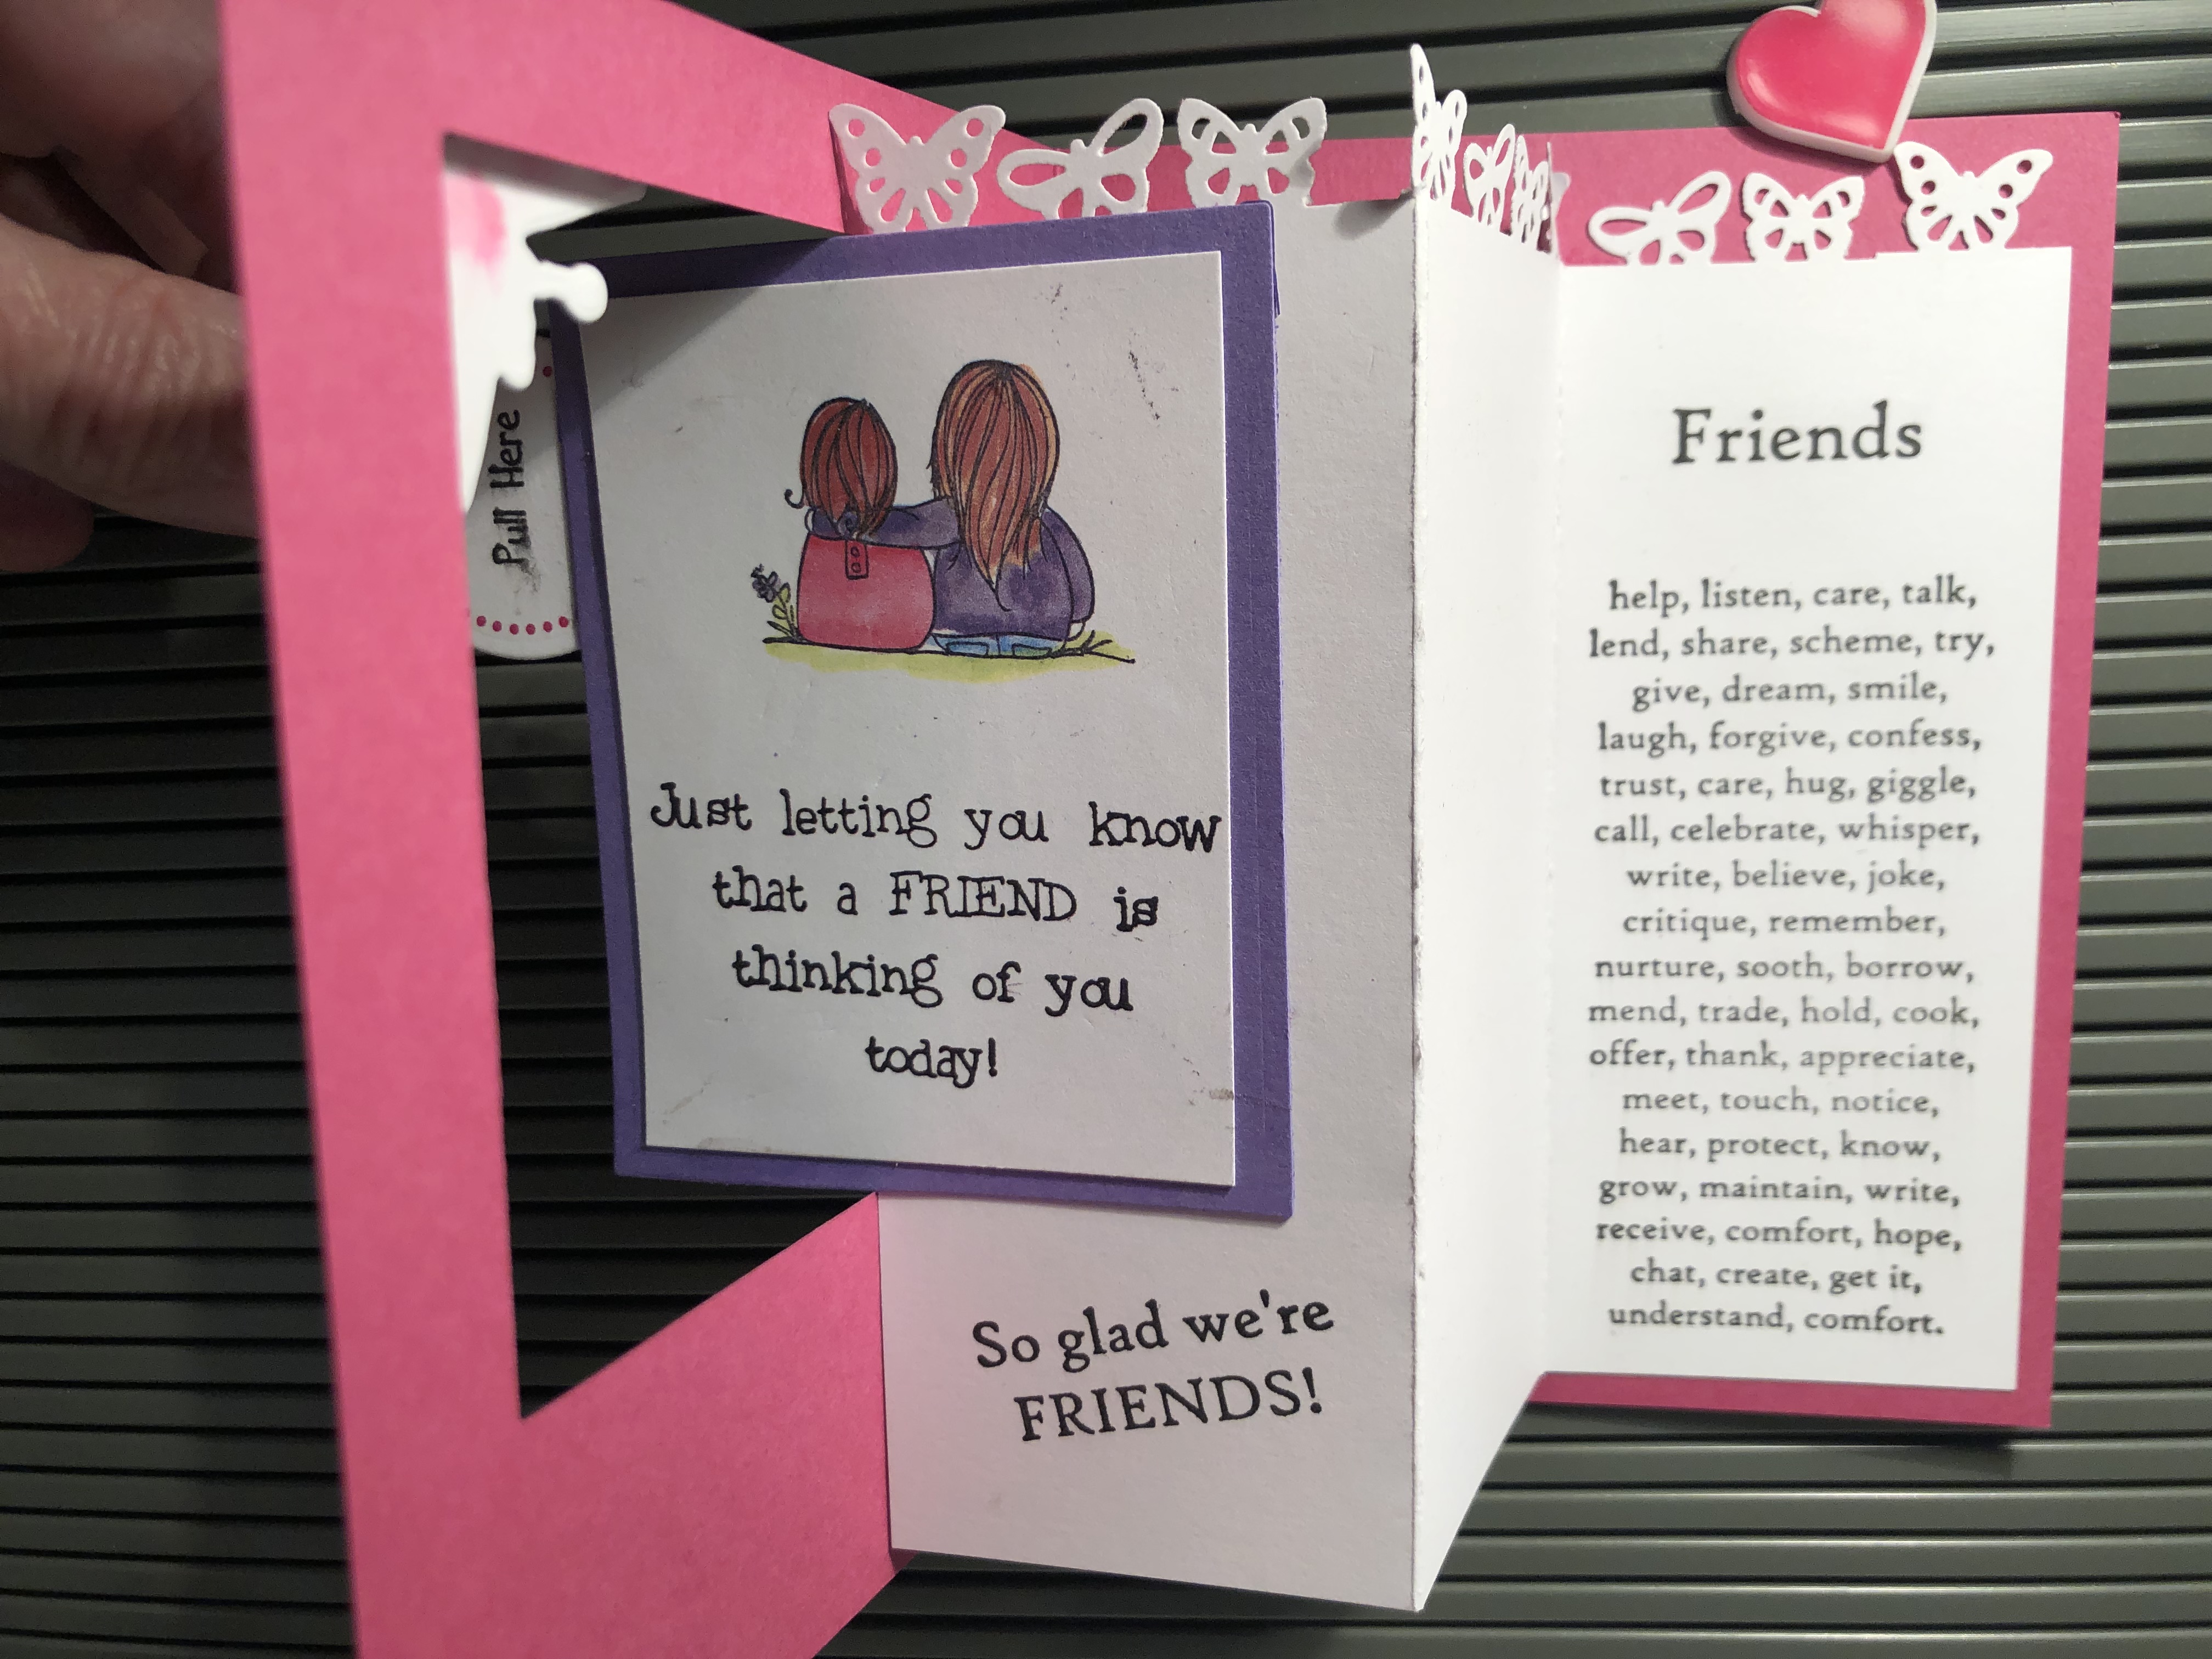 Pull Here
Just letting you know
that a FRIEND is
thinking of you
today!
So glad we're
FRIENDS!
Friends
help, listen, care, talk,
lend, share, scheme, try,
give, dream, smile,
laugh, forgive, confess,
trust, care, hug, giggle,
call, celebrate, whisper,
write, believe, joke,
critique, remember,
nurture, sooth, borrow,
mend, trade, hold, cook,
offer, thank, appreciate,
meet, touch, notice,
hear, protect, know,
grow, maintain, write,
receive, comfort, hope,
chat, create, get it,
understand, comfort.